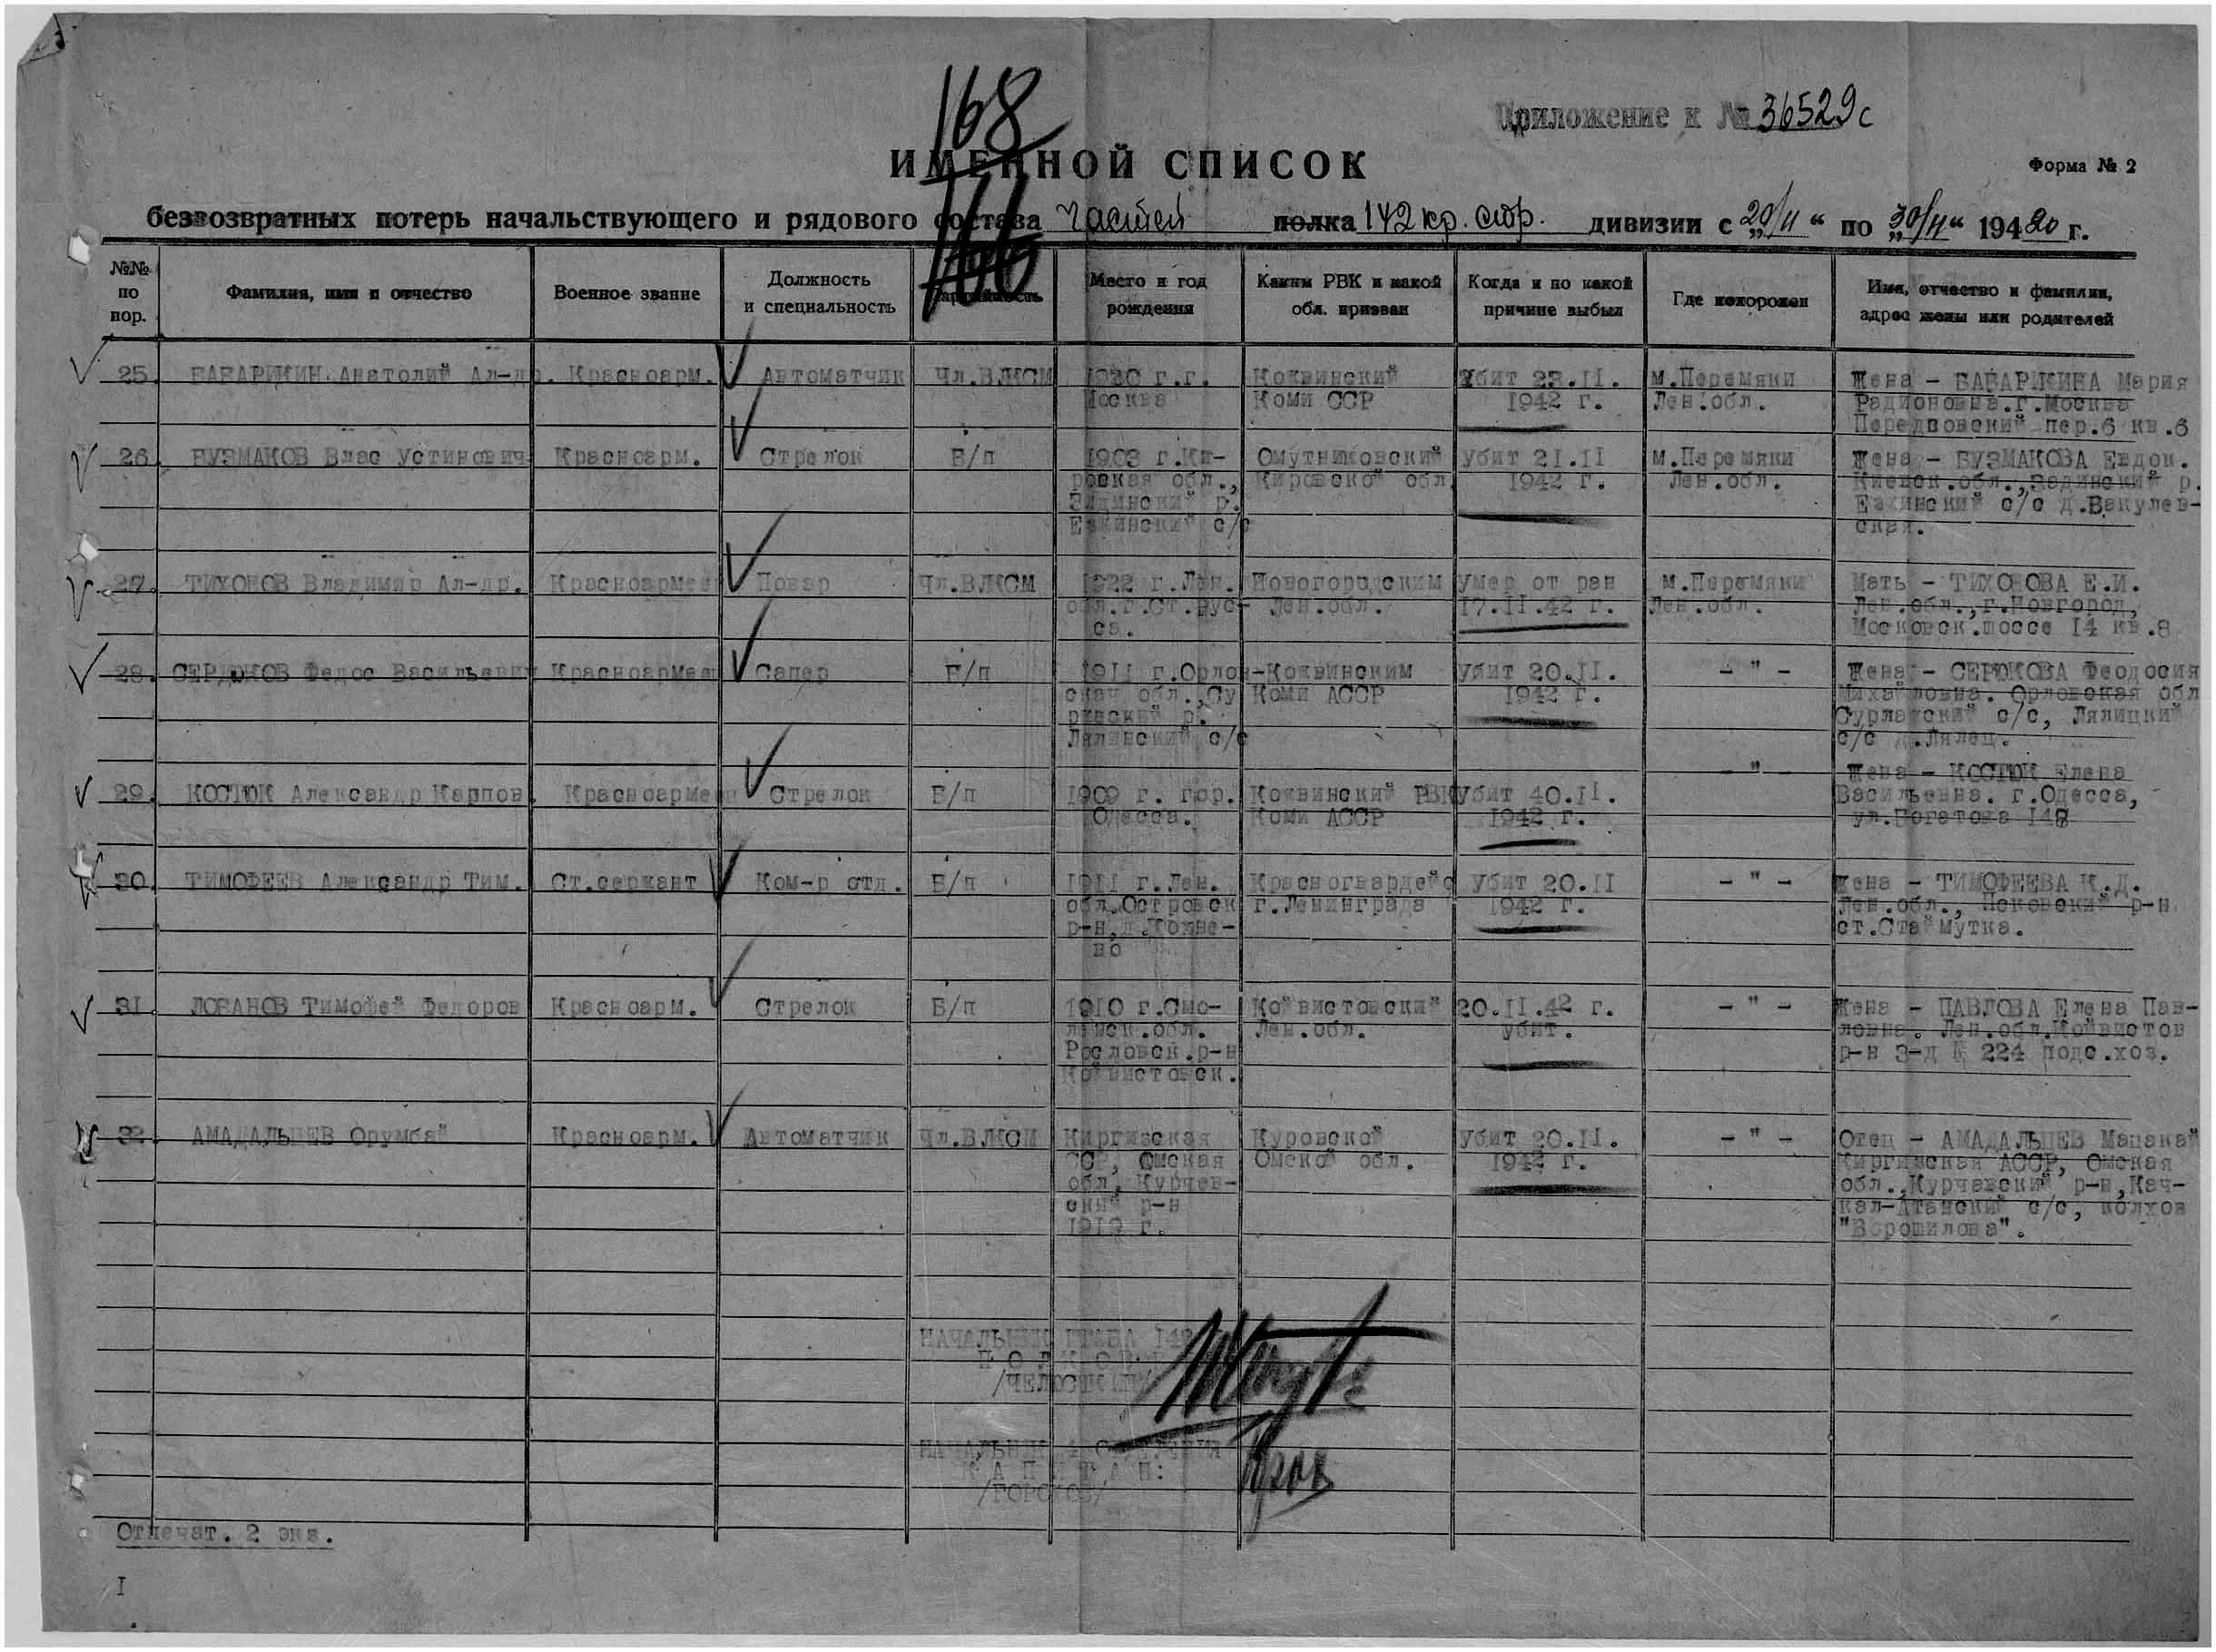 168
Приложение к № 36529с
ИМЕННОЙ СПИСОК
Форма № 2
безвозвратных потерь начальствующего и рядового состава частей полка 142 кр. стр. дивизии с „20/11“ по „30/11“ 1942 г.
№№ по пор.
Фамилия, имя и отчество
Военное звание
Должность и специальность
Место и год рождения
Каким РВК и какой обл. призван
Когда и по какой причине выбыл
Где похоронен
Имя, отчество и фамилия, адрес жены или родителей
25. БАБАРИКИН Анатолий Ал-др. Красноарм. Автоматчик Чл.ВЛКСМ 1920 г.г. Коквинский Убит 23.II. м.Перемяки Жена - БАБАРИКИНА Мария
Москва Коми ССР 1942 г. Лен.обл. Радионовна.г.Москва
пер.6 кв.6
26. БУЗМАКОВ Влас Устинович Красноарм. Стрелок Б/п 1903 г.Ки- Омутниковский Убит 21.II м.Перемяки Жена - БУЗМАКОВА Евдок.
ровская обл., Кировской обл. 1942 г. Лен.обл. обл.,Зединский р.
Зидинский р. Езкинский с/с д.Вакулев-
Езкинский с/с ская.
27. ТИХОНОВ Владимир Ал-др. Красноармеец Повар Чл.ВЛКСМ 1922 г.Лен. Новогородским Умер от ран м.Перемяки Мать - ТИХОНОВА Е.И.
обл.г.Ст.Рус- Лен.обл. 17.II.42 г. Лен.обл. Лен.обл.,г.Новгород,
са. Московск.шоссе I4 кв.8
28. СЕРДЮКОВ Федос Васильевич Красноармеец Сапер Б/п 1911 г.Орлов- Коквинским Убит 20.II. - " - Жена - СЕРЮКОВА Феодосия
ская обл.,Су Коми АССР 1942 г. Михайловна. Орловская обл
ражский р. с/с, Лялицкий
с/с с/с д.Лялец.
29. КОСТЮК Александр Карпов. Красноармеец Стрелок Б/п 1909 г. гор. Коквинский РВК Убит 40.II. - " - Жена - КОСТЮК Елена
Одесса. Коми АССР 1942 г. Васильевна. г.Одесса,
ул.Богатова
30. ТИМОФЕЕВ Александр Тим. Ст.сержант Ком-р отд. Б/п 1911 г.Лен. Красногвардейс Убит 20.II - " - Жена - ТИМОФЕЕВА К.Д.
обл.Островск г.Ленинграда 1942 г. Лен.обл., Псковский р-н
р-н, ст.Стаймутка.
во
31. ЛОБАНОВ Тимофей Федоров Красноарм. Стрелок Б/п 1910 г.Смо- Койвистовский 20.II.42 г. - " - Жена - ПАВЛОВА Елена Пав-
ленск.обл. Лен.обл. убит. ловна. Лен.обл.Койвистов
Рословск.р-н р-н З-д № 224 подс.хоз.
Койвистовск.
32. АМАДАЛЬПЕВ Орумбай Красноарм. Автоматчик Чл.ВЛКСМ Киргизская Куровской Убит 20.II. - " - Отец - АМАДАЛЬПЕВ Мацакай
ССР, Омская Омской обл. 1942 г. Киргизская АССР, Омская
обл, Курчев- обл.,Курчавский р-н,Кач-
ский р-н кал-Атанский с/с, колхоз
1919 г. "Ворошилова".
НАЧАЛЬНИК ШТАБА 142
/ЧЕЛОСТКИН/
НАЧАЛЬНИК 4 ОТДЕЛЕНИЯ
КАПИТАН:
/ГОРОХОВ/
Отпечат. 2 экз.
I